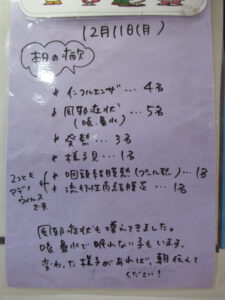 12月11日(月)
本日の病欠
* インフルエンザ … 4名
* 風邪症状 … 5名
(咳・鼻水)
* 発熱 … 3名
* 様子見 … 1名
* 咽頭結膜熱(プール熱) … 1名
* 流行性角結膜炎 … 1名
2つとも
アデノ
ウイルス
です。
風邪症状も増えてきました。
咳・鼻水で眠れない子もいます。
変わった様子があれば、朝伝えて
ください!